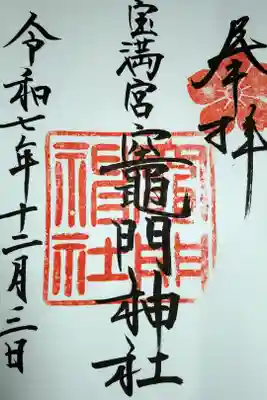 奉拝
宝満宮竈門神社
竈門神社
令和七年十二月三日